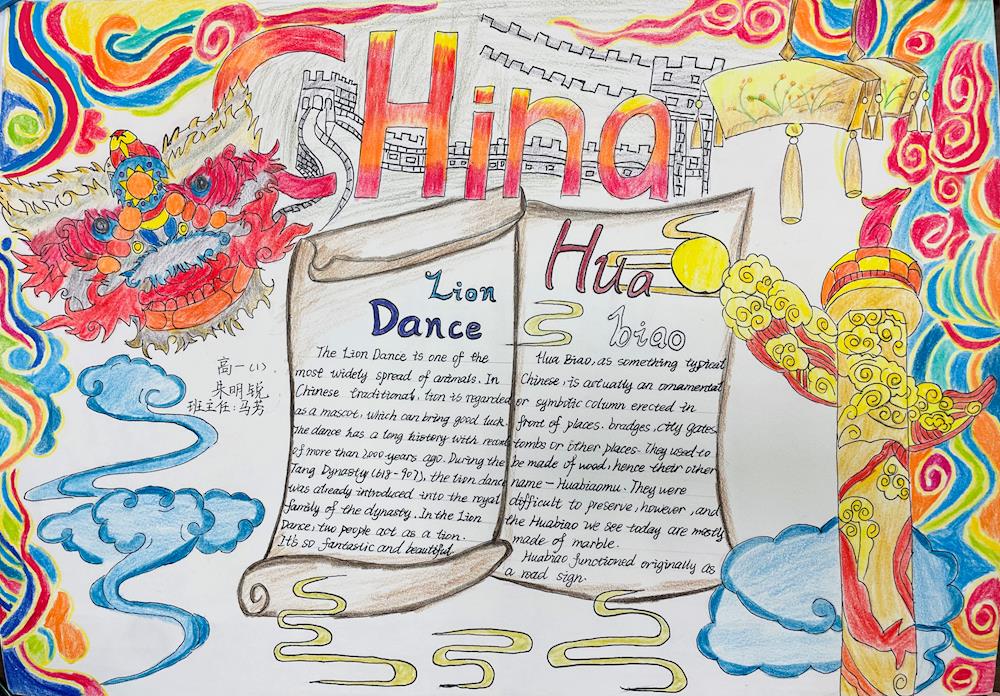 CHina
Lion
Dance
The Lion Dance is one of the
most widely spread of animals. In
Chinese traditional, lion is regarded
as a mascot, which can bring good luck.
the dance has a long history with record
of more than 2,000 years ago. During the
Tang Dynasty (618-907), the lion dance
was already introduced into the royal
family of the dynasty. In the Lion
Dance, two people act as a lion.
It's so fantastic and beautiful.
Hua
biao
Hua Biao, as something typical
Chinese, is actually an ornamental
or symbolic column erected in
front of places. bradges, city gates
tombs or other places. They used to
be made of wood, hence their other
name - Huabiaomu. They were
difficult to preserve, however, and
the Huabiao we see today are mostly
made of marble.
Huabiao functioned originally as
a road sign.
高一(1)
朱明锐
班主任:马芳